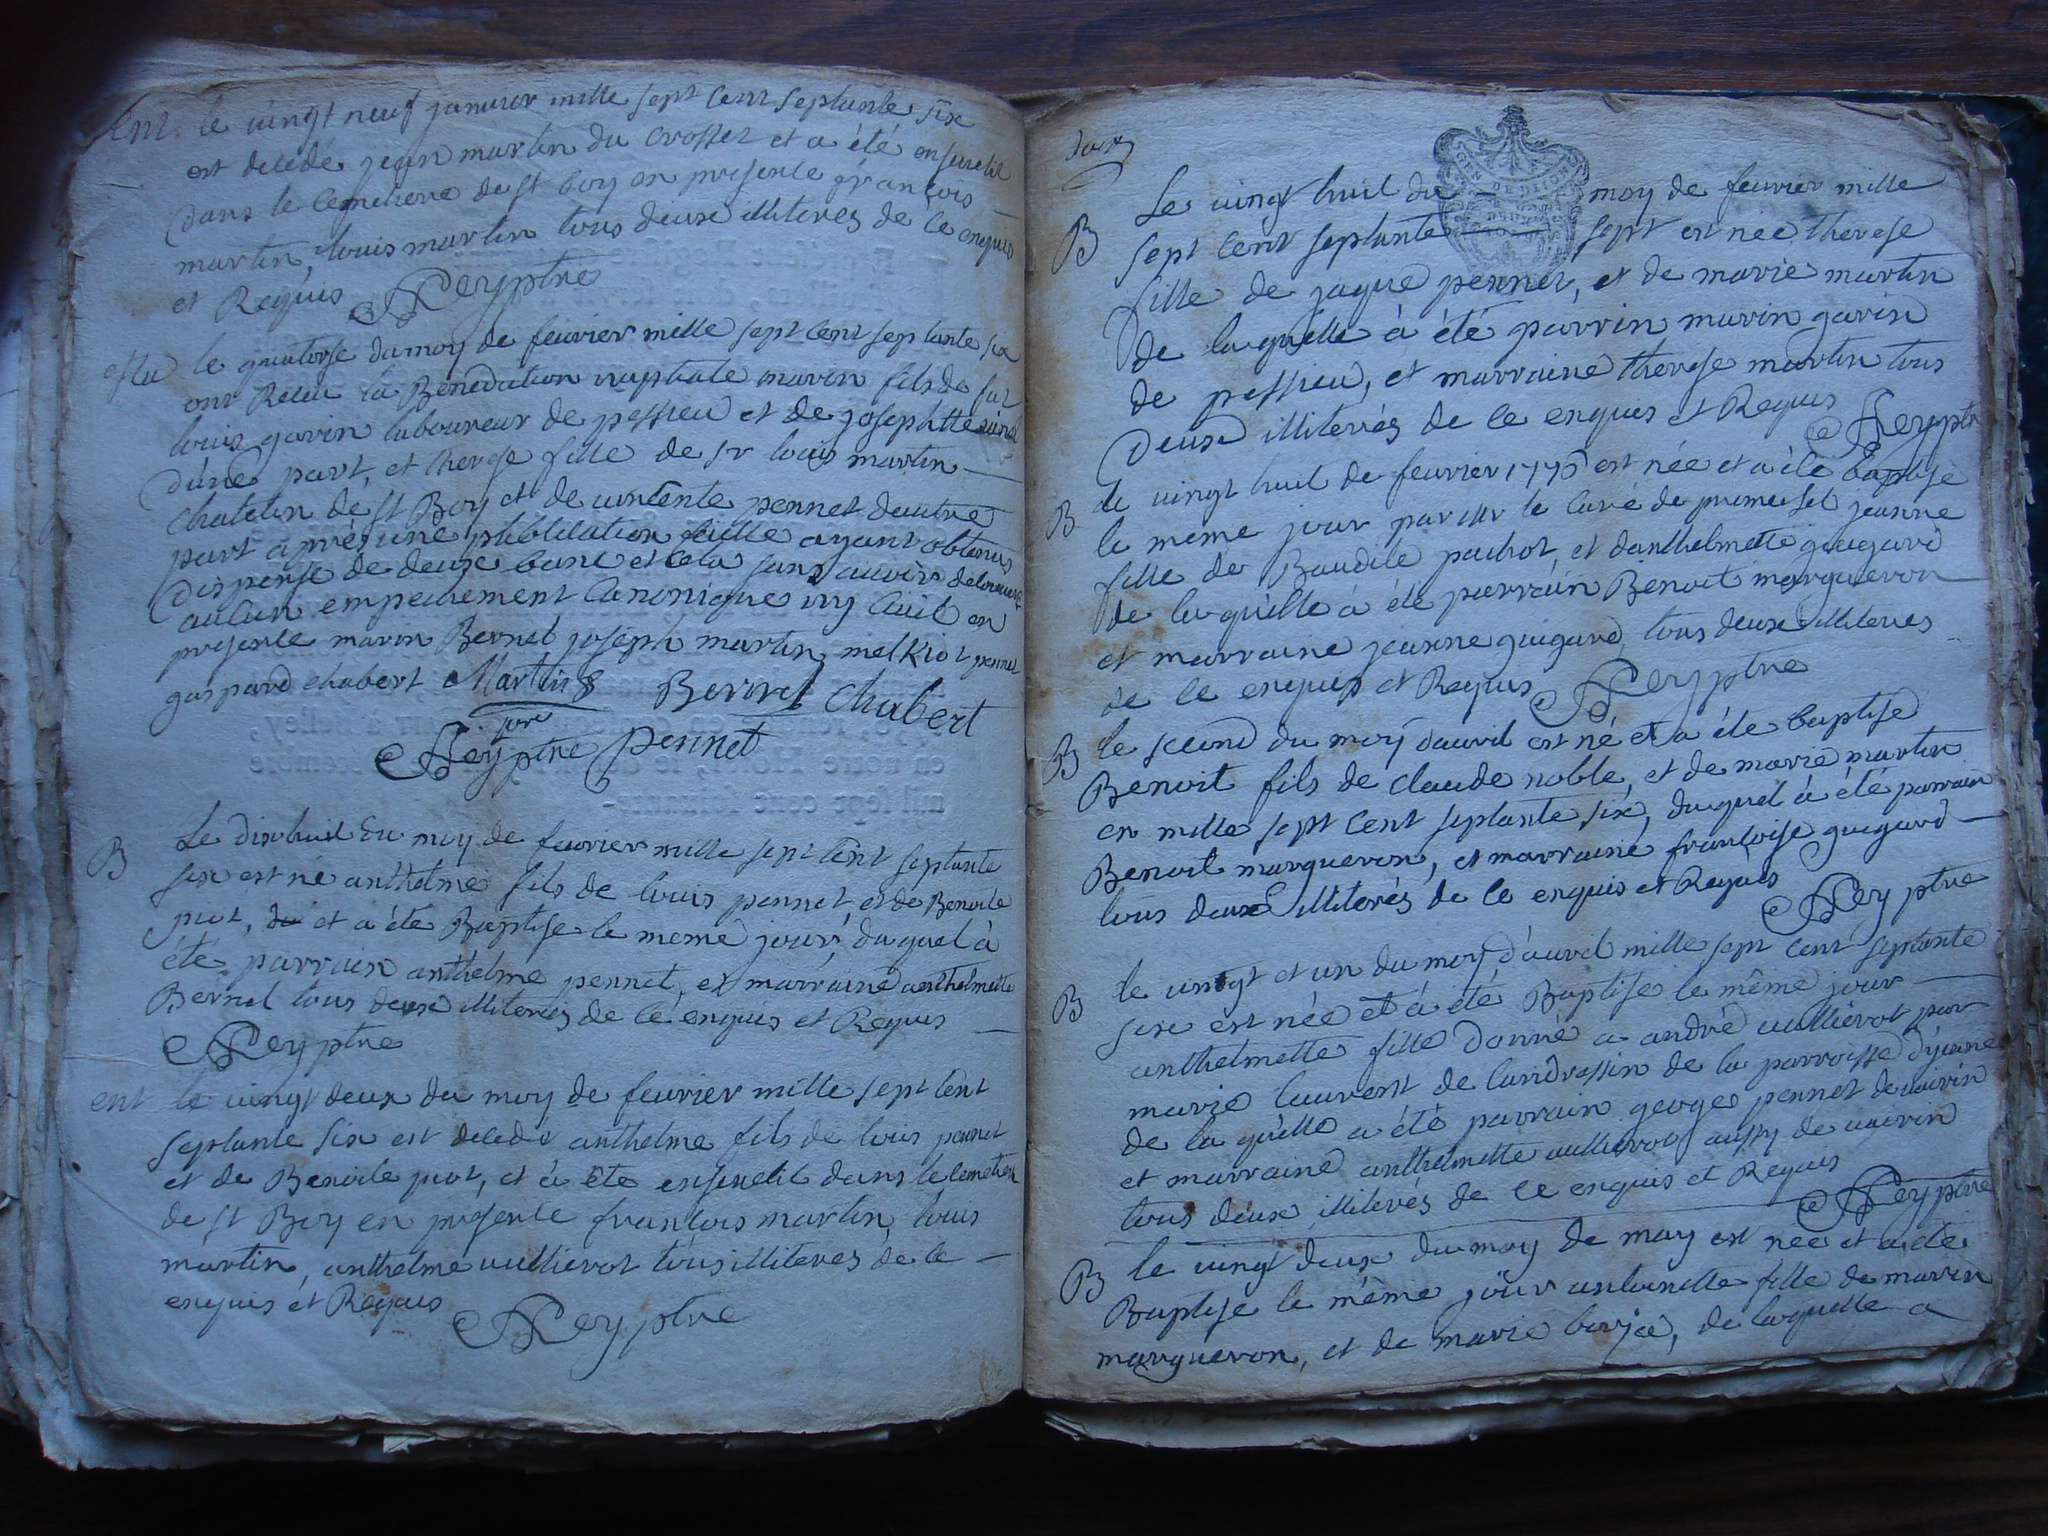 Ent. le vingt neuf janvier mille sept cent septante six
est decedé jean martin du crosset et a été enseveli
dans le cemetiere de st boy en presente françois
martin, louis martin tous deux illiteres de ce enquis
et Requis Rey ptre
le quatorse du moy de feuvrier mille sept cent septante six
ont Receu la Benediction nuptiale marin fils de
louis gavin laboureur de peyssieu et de josephtte
d'une part, et therese fille de sr louis martin
chatelin de st Boy et de vincente pennet d'autre
part après une publication faitte ayant obtenus
dispense de deux banc et cela sans avoir decouvert
aucun empechement canonique ny civil en
presente marin Bernet joseph martin, melkiot pennet
gaspard chabert Martin Bernet Chabert
Rey ptre pennet
B Le dixhuit du moy de feuvrier mille sept cent septante
six est né anthelme fils de louis pennet, et de Benoite
piot, et a été Baptise le meme jour, duquel à
été parrain anthelme pennet, et marraine anthelmette
Bernet tous deux illiterés de ce enquis et Requis
Rey ptre
ent le vingt deux du moy de feuvrier mille sept cent
septante six est decedé anthelme fils de louis pennet
et de Benoite piot, et à été enseveli dans le cemetiere
de st Boy en presente francois martin, louis
martin, anthelme vullierot tous illiteres de ce
enquis et Requis
Rey ptre
GEN DE DIJON
Le vingt huit du moy de feuvrier mille
B sept cent septante sept est nee therese
fille de jaque pennet, et de marie martin
de laquelle à été parrin marin gavin
de peyssieu, et marraine therese martin tous
deux illiterés de ce enquis et Requis Rey ptre
B le vingt huit de feuvrier 1776 est née et a été baptise
le meme jour par mr le curé de premeisel jeanne
fille de Baudile pochot, et d'anthelmette guigard
de laquelle à été parrain Benoit marqueron
et marraine jeanne guigard, tous deux illiteres
de ce enquis et Requis Rey ptre
B le second du moy d'avril est né et a été baptise
Benoit fils de claude noble, et de marie martin
en mille sept cent septante six, duquel à été parrain
Benoit marqueron, et marraine françoise guigard
tous deux illiterés de ce enquis et Requis
Rey ptre
B le vingt et un du moy d'avril mille sept cent septante
six est née et à été Baptise le même jour
anthelmette fille donné a andré vullierot par
marie laurent de landrassin de la parroisse d'yenne
de laquelle a été parrain george pennet de
et marraine anthelmette vullierot aussy de
tous deux illiterés de ce enquis et Requis
Rey ptre
B le vingt deux du moy de may est née et a été
Baptise le même jour antoinette fille de marin
marqueron, et de marie borjé, de laquelle a